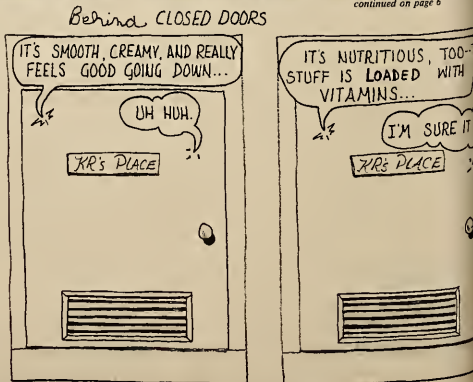 continued on page 6
Behind CLOSED DOORS
IT'S SMOOTH, CREAMY, AND REALLY
FEELS GOOD GOING DOWN...
UH HUH.
KR's PLACE
IT'S NUTRITIOUS, TOO--
STUFF IS LOADED WITH
VITAMINS...
I'M SURE IT
KR's PLACE